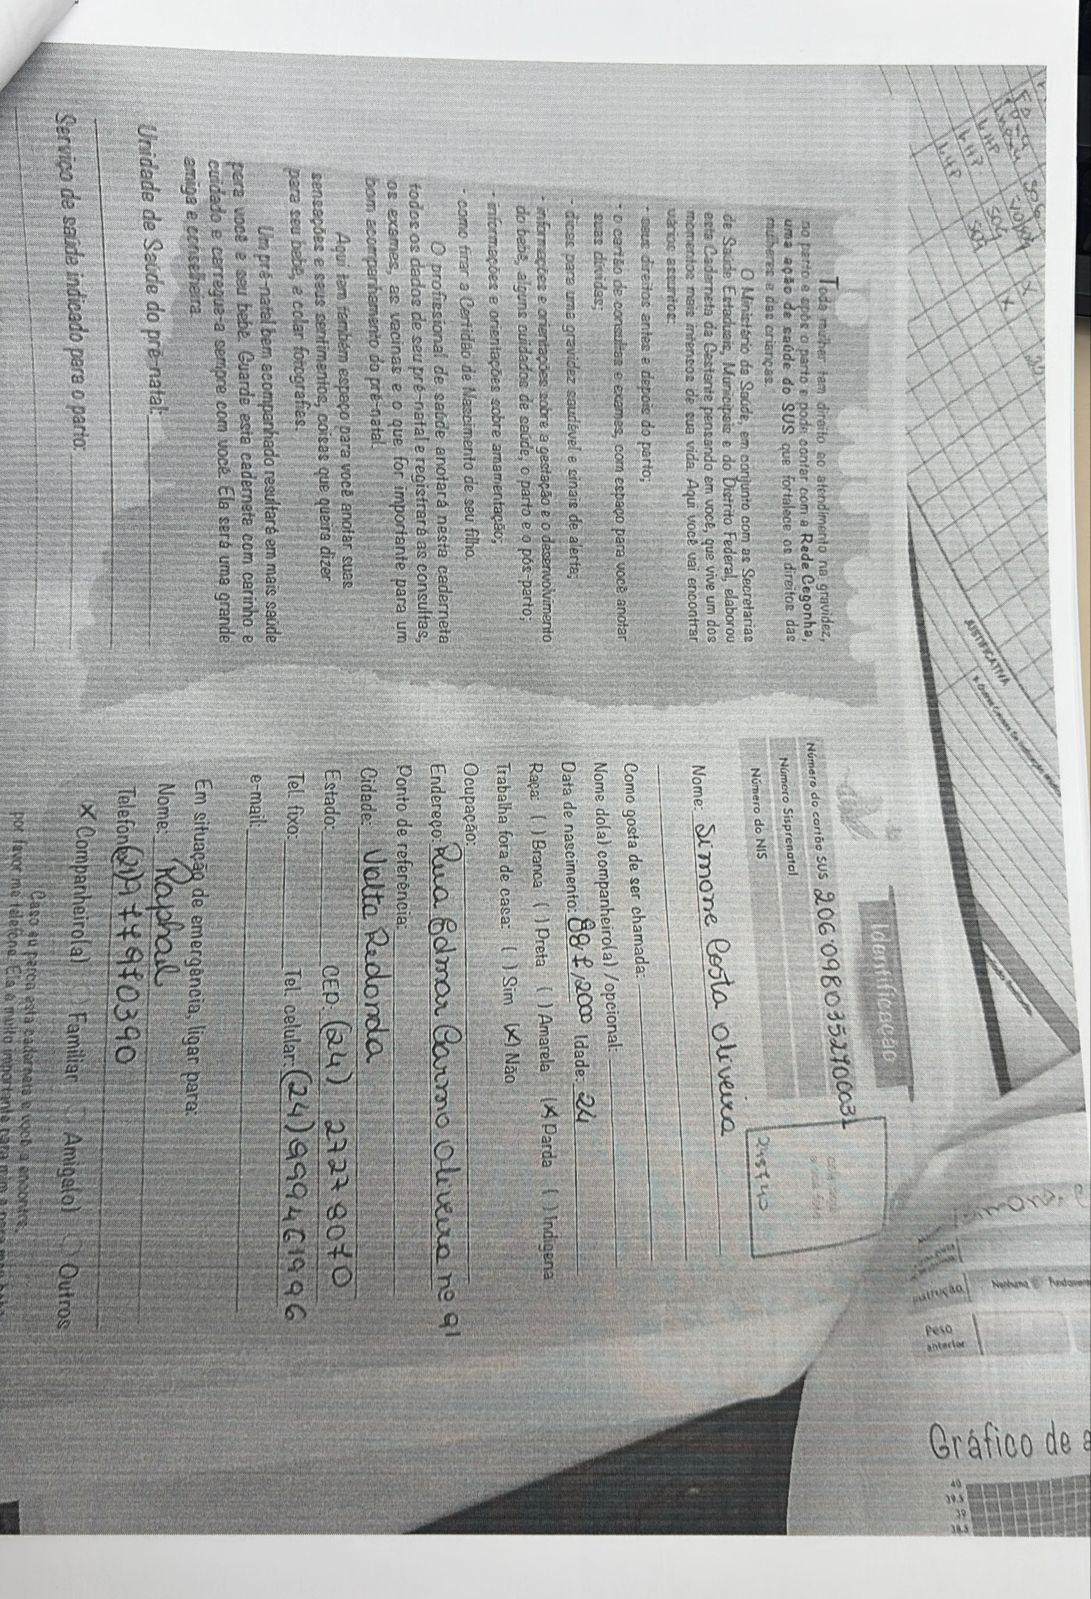 Toda mulher tem direito ao atendimento na gravidez,
no parto e após o parto e pode contar com a Rede Cegonha,
uma ação de saúde do SUS que fortalece os direitos das
mulheres e das crianças.
O Ministério da Saúde, em conjunto com as Secretarias
de Saúde Estaduais, Municipais e do Distrito Federal, elaborou
esta Caderneta da Gestante pensando em você, que vive um dos
momentos mais intensos de sua vida. Aqui você vai encontrar
vários assuntos:
- seus direitos antes e depois do parto;
- o cartão de consultas e exames, com espaço para você anotar
suas dúvidas;
- dicas para uma gravidez saudável e sinais de alerta;
- informações e orientações sobre a gestação e o desenvolvimento
do bebê, alguns cuidados de saúde, o parto e o pós-parto;
- informações e orientações sobre amamentação;
- como tirar a Certidão de Nascimento de seu filho.
O profissional de saúde anotará nesta caderneta
todos os dados de seu pré-natal e registrará as consultas,
os exames, as vacinas e o que for importante para um
bom acompanhamento do pré-natal.
Aqui tem também espaço para você anotar suas
sensações e seus sentimentos, coisas que queira dizer
para seu bebê, e colar fotografias.
Um pré-natal bem acompanhado resultará em mais saúde
para você e seu bebê. Guarde esta caderneta com carinho e
cuidado e carregue-a sempre com você. Ela será uma grande
amiga e conselheira.
Unidade de Saúde do pré-natal:
Serviço de saúde indicado para o parto:
Identificação
Número do cartão SUS 2060980352700031
Número Sisprenatal
Número do NIS
215740
Nome: Simone Costa Oliveira
Como gosta de ser chamada:
Nome do(a) companheiro(a) /opcional:
Data de nascimento: 08/7/2000 Idade: 24
Raça: ( ) Branca ( ) Preta ( ) Amarela (X) Parda ( ) Indígena
Trabalha fora de casa: ( ) Sim (X) Não
Ocupação:
Endereço: Rua Edmar Carmo Oliveira nº 91
Ponto de referência:
Cidade: Volta Redonda
Estado: CEP: (24) 27278070
Tel. fixo: Tel. celular: (24) 999461996
e-mail:
Em situação de emergência, ligar para:
Nome: Raphael
Telefone (21) 977970390
X Companheiro(a) ( ) Familiar ( ) Amigo(o) ( ) Outros
Caso eu perca esta caderneta e você a encontre,
por favor me telefone. Ela é muito importante para mim e para meu bebê.
JUSTIFICATIVA
Nenhuma
Peso
anterior
Gráfico de a
40
39.5
39
38.5